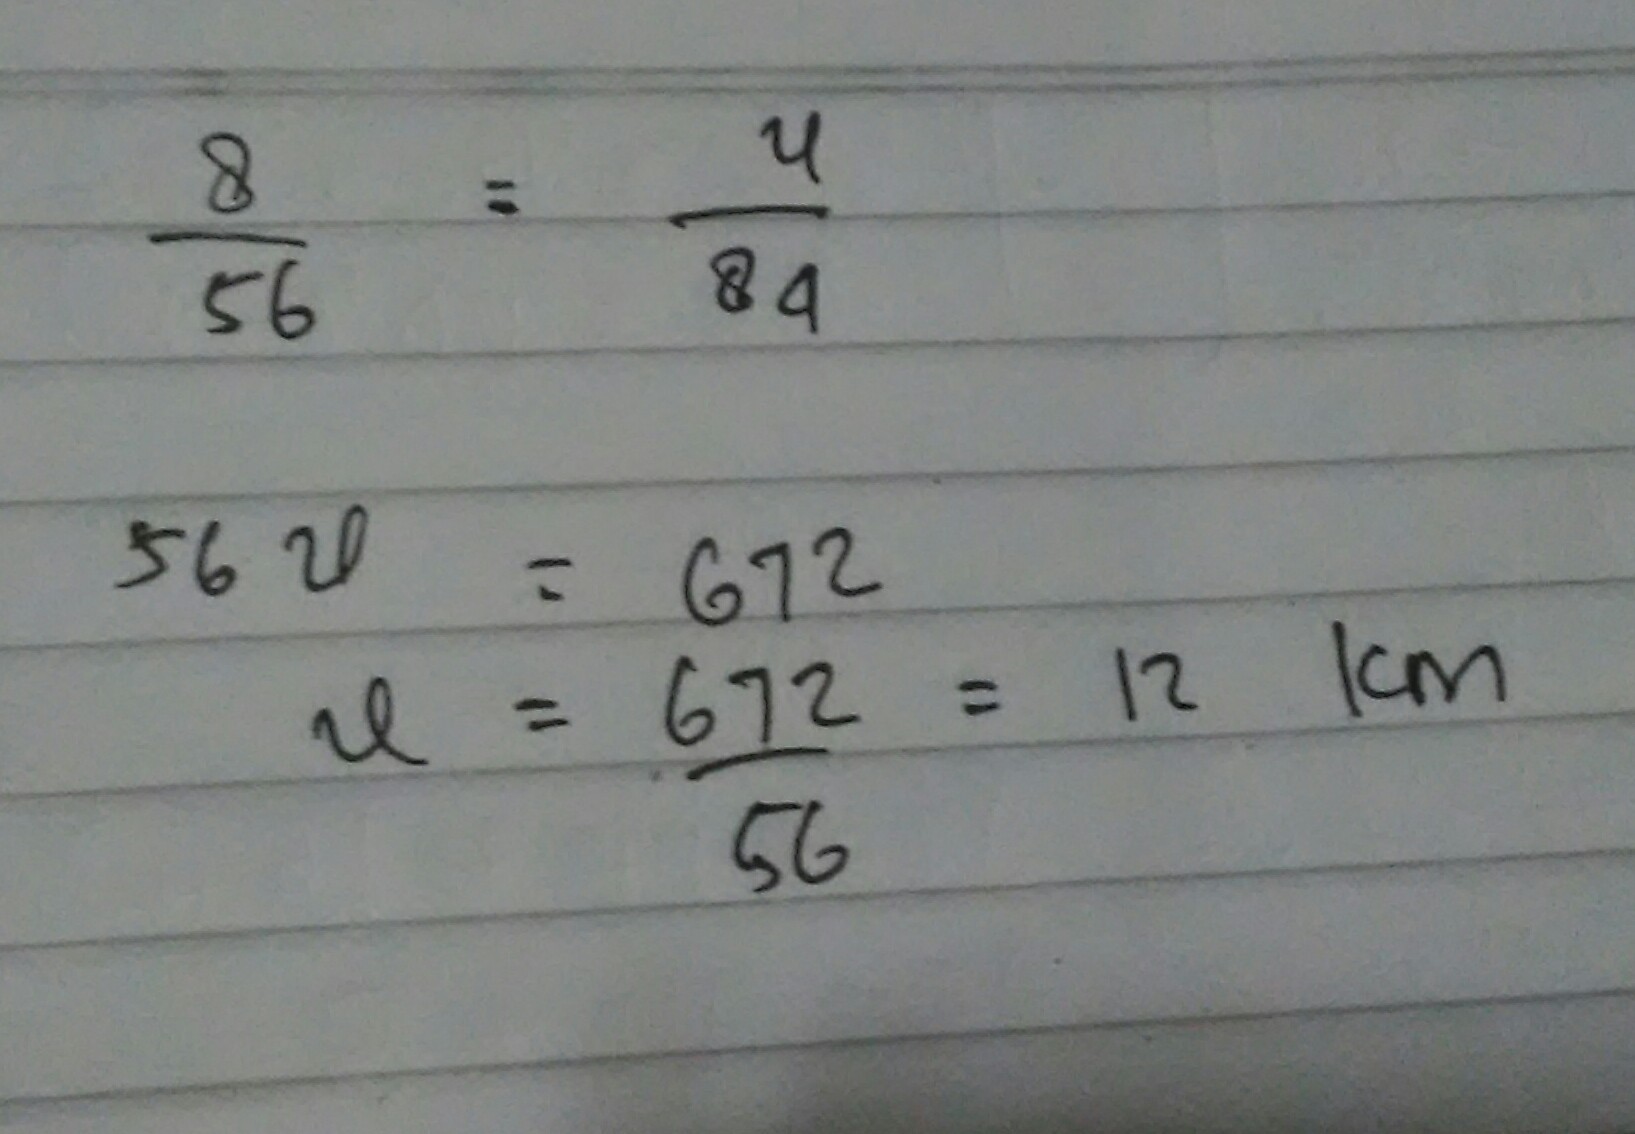 8/56 = x/84
56x = 672
x = 672/56 = 12 km